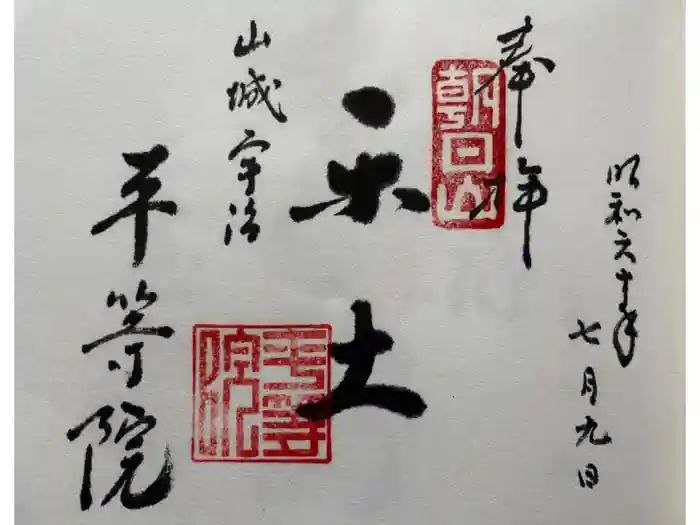 昭和六十年
七月九日
奉拝
朝日山
楽土
山城宇治
平等院
平等院